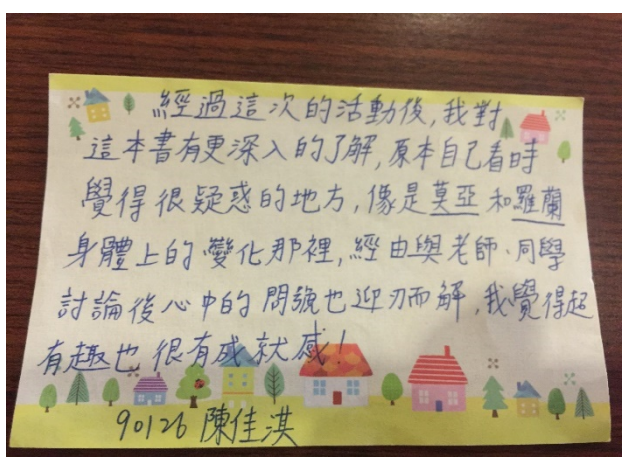 經過這次的活動後,我對
這本書有更深入的了解,原本自己看時
覺得很疑惑的地方,像是莫亞和羅蘭
身體上的變化那裡,經由與老師、同學
討論後心中的問號也迎刃而解,我覺得超
有趣也很有成就感!
90126 陳佳淇